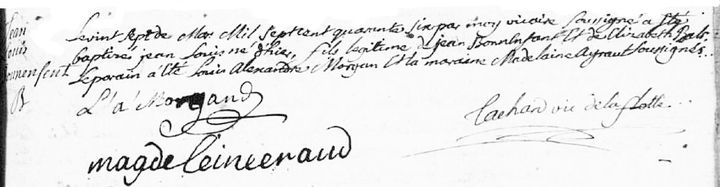 jean
Louis
bonnenfent
B
Le vint sept de Mars Mil sept cent quarante six par moy vicaire soussigné a été
baptisé jean Louis né d'hier, fils légitime de jean Bonnenfant Et de Elizabeth
Le parain a été Louis Alexandre Morgan Et la maraine Madelaine Ayraut soussignés
L'a Morgand
Lachard vic de la flotte
magdeleine eraud